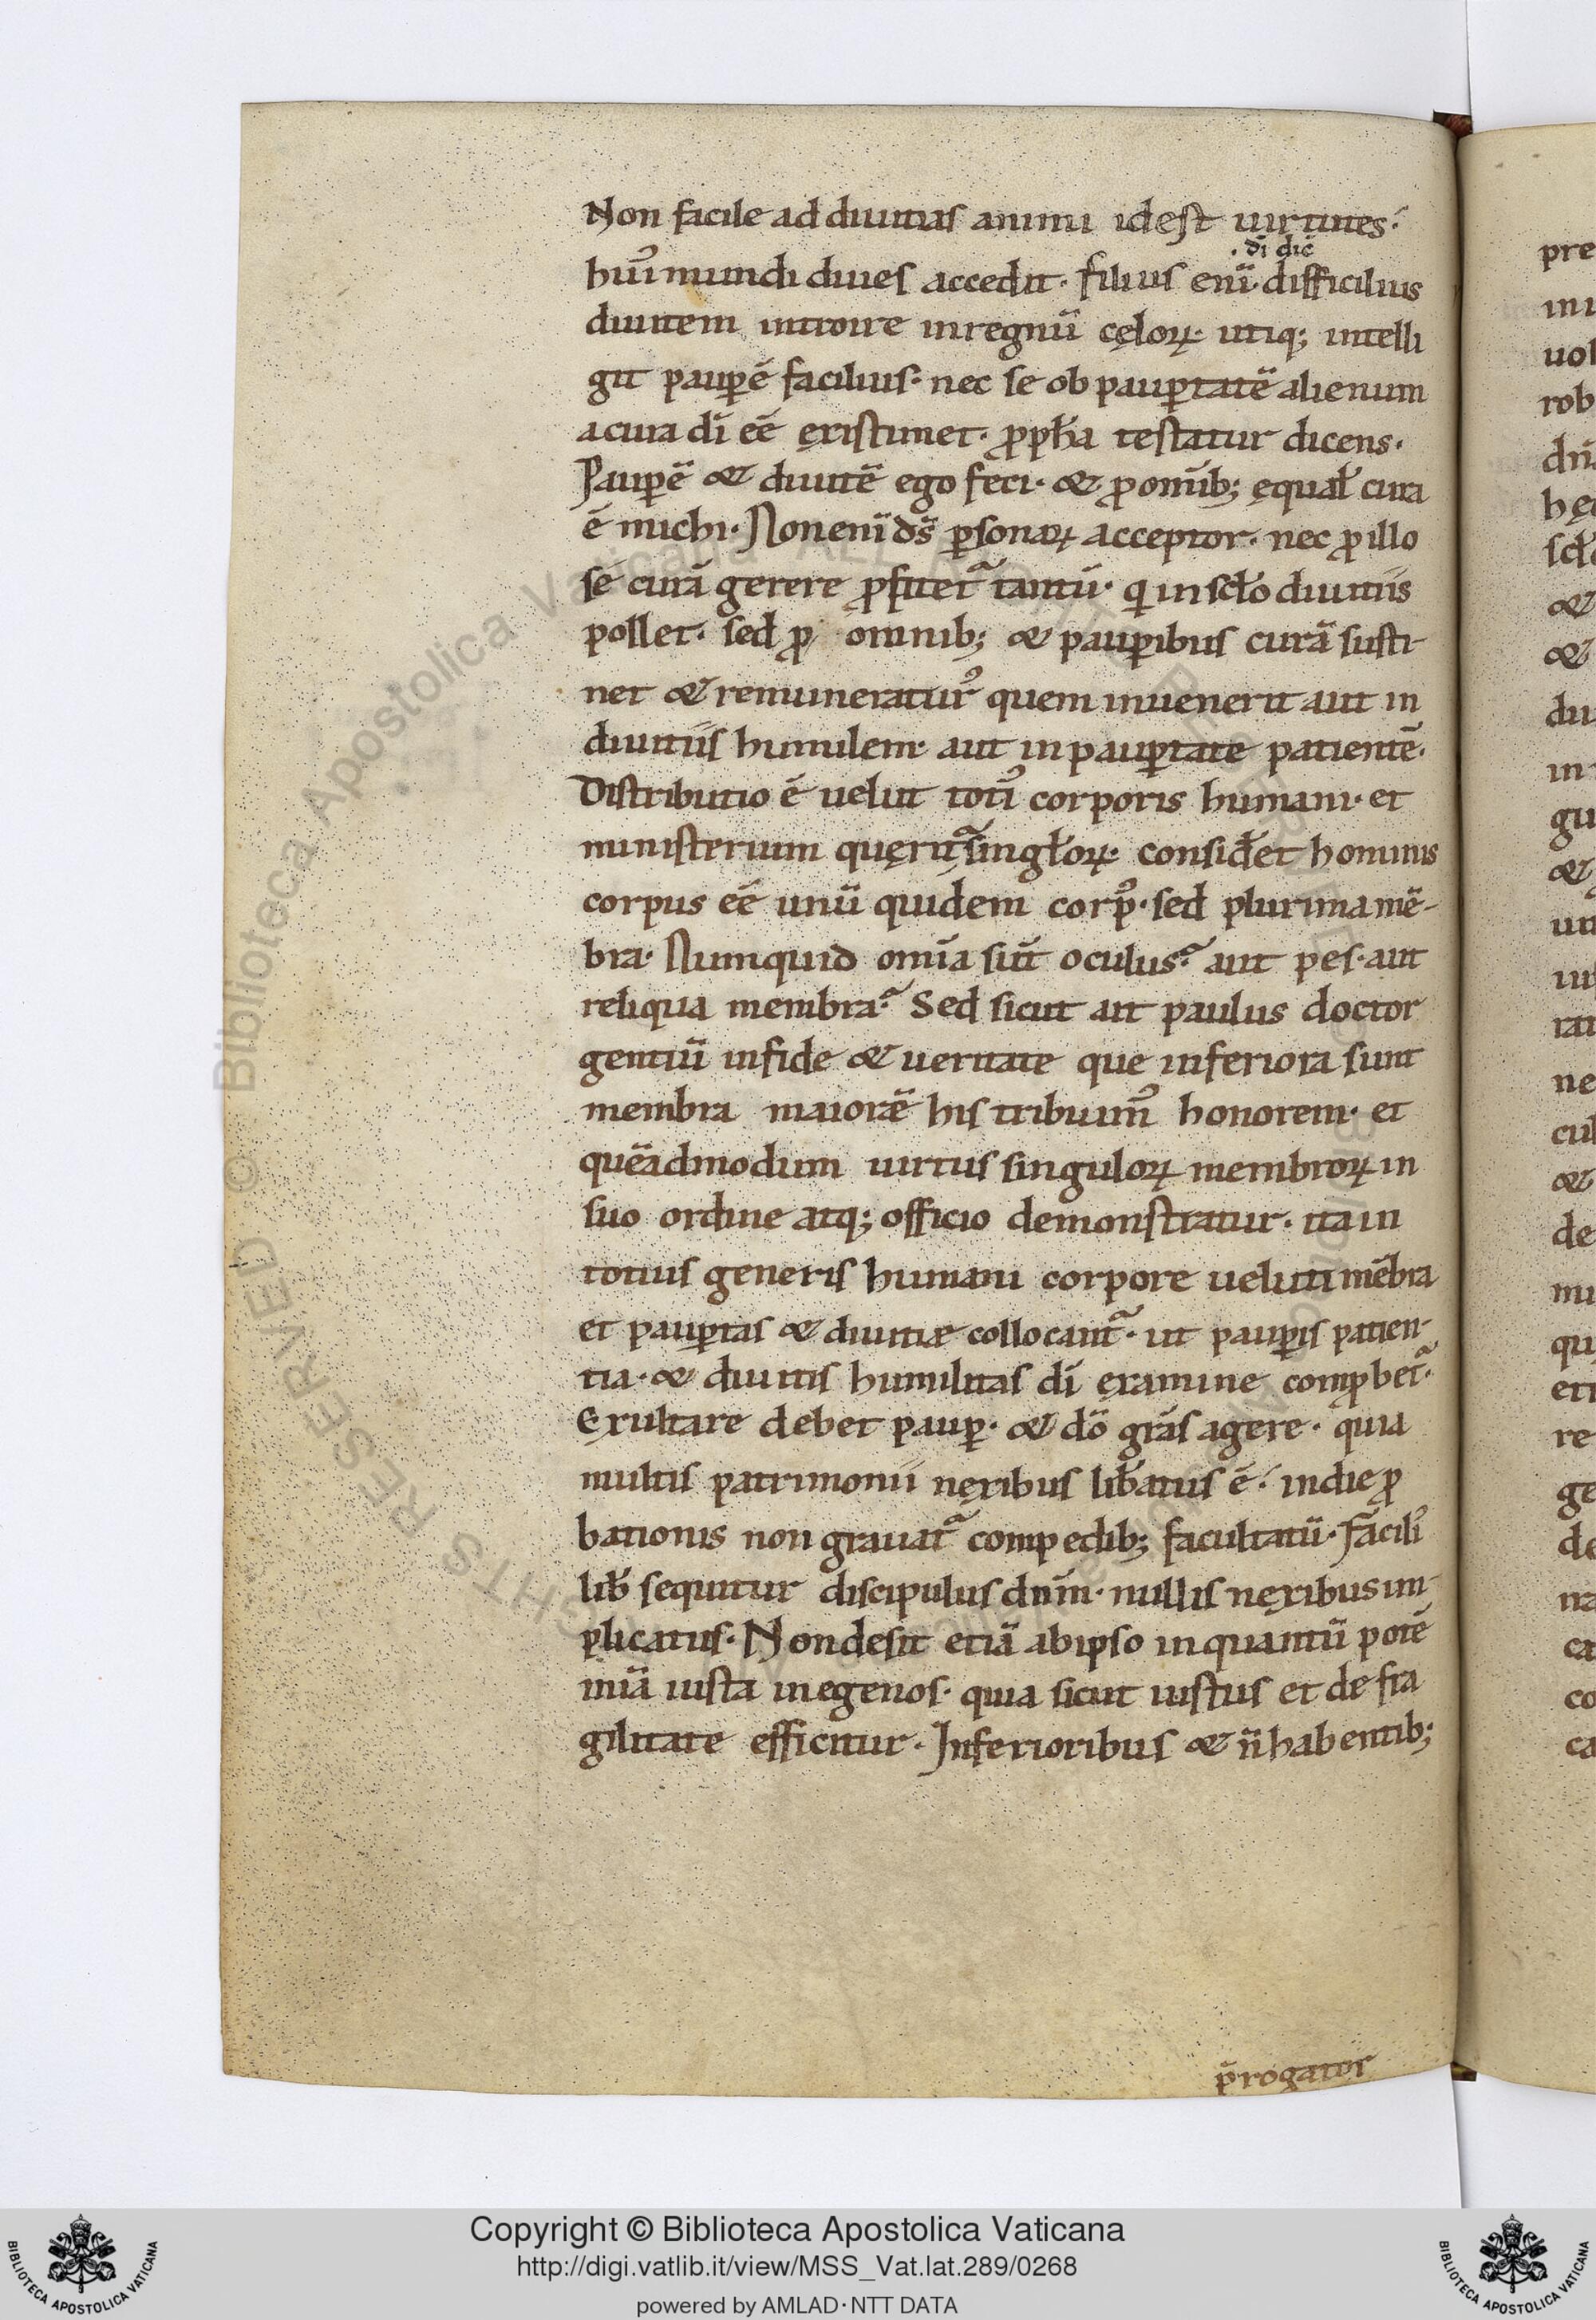 Non facile ad diuitias animi idest uirtutes·
.dī dic̄
hui᾽ mundi diues accedit· filius enī· difficilius
diuitem introire inregnū cęloꝝ· utiq; intelli
git paup̲ē facilius· nec se ob paup̲tatē alienum
acura dī eē exįstimet· ꝓph̄a testatur dicens·
Paup̲ē & diuitē ego feci· & ꝓ om̄ib; ęqual̄ cura
ē michi· Non enī dꝰ p̲sonaꝝ acceptor· nec ꝓ illo
se curā gerere ꝓfitet᷑ tantū· qi in scl̄o diuitiis
pollet· sed ꝓ omnib; & paup̲ibus curā susti-
net & remuneratur᾽ quem inuenerit aut in
diuitiis humilem· aut in paup̲tate patientē·
Distributio ē uelut toti᾽ corporis humani· et
ministerium quęrit᷑ singl̄oꝝ· consid̄et hominis
corpus eē unū quidem corp᾽· sed plurima mē-
bra· Numquid om̄a sūt oculus? aut pes· aut
reliqua membra? Sed sicut ait paulus doctor
gentiū in fide & ueritate que inferiora sunt
membra maiorē his tribuim᾽ honorem· et
quēadmodum uirtus singuloꝝ membroꝝ in
suo ordine atq; officio demonstratur· ita in
totius generis humani corpore ueluti mēbra
et paup̲tas & diuitiæ collocant᷑· ut paup̲is patien-
tia· & diuitis humilitas dī examine comꝓbet᷑·
Exultare debet paup̲· & dō grās agere· quia
multis patrimonii nexibus lib̄atus ē· indie ꝓ
bationis non grauat᷑ compedib; facultatū· Facili᾽
lib̄ sequitur discipulus dn̄m· nullis nexibus im-
plicatus· Non desit etiā ab ipso in quantū potē
miā iusta in egenos· quia sicut iustus et de fra
gilitate efficitur· Inferioribus & n̄ habentib;
p̄rogator
pre
uol
rob
dn̄
&
&
in
gu
&
rat
ne
cul
&
de
qu
re
ge
de
na
ca
co
ca
© Biblioteca Apostolica Vaticana
RESERVED
Copyright © Biblioteca Apostolica Vaticana
http://digi.vatlib.it/view/MSS_Vat.lat.289/0268
powered by AMLAD·NTT DATA
BIBLIOTECA APOSTOLICA VATICANA
BIBLIOTECA APOSTOLICA VATICANA